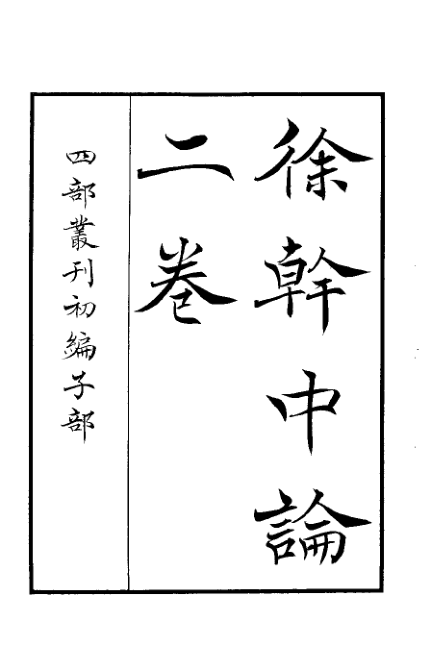 徐幹中論
二卷
四部叢刊初編子部